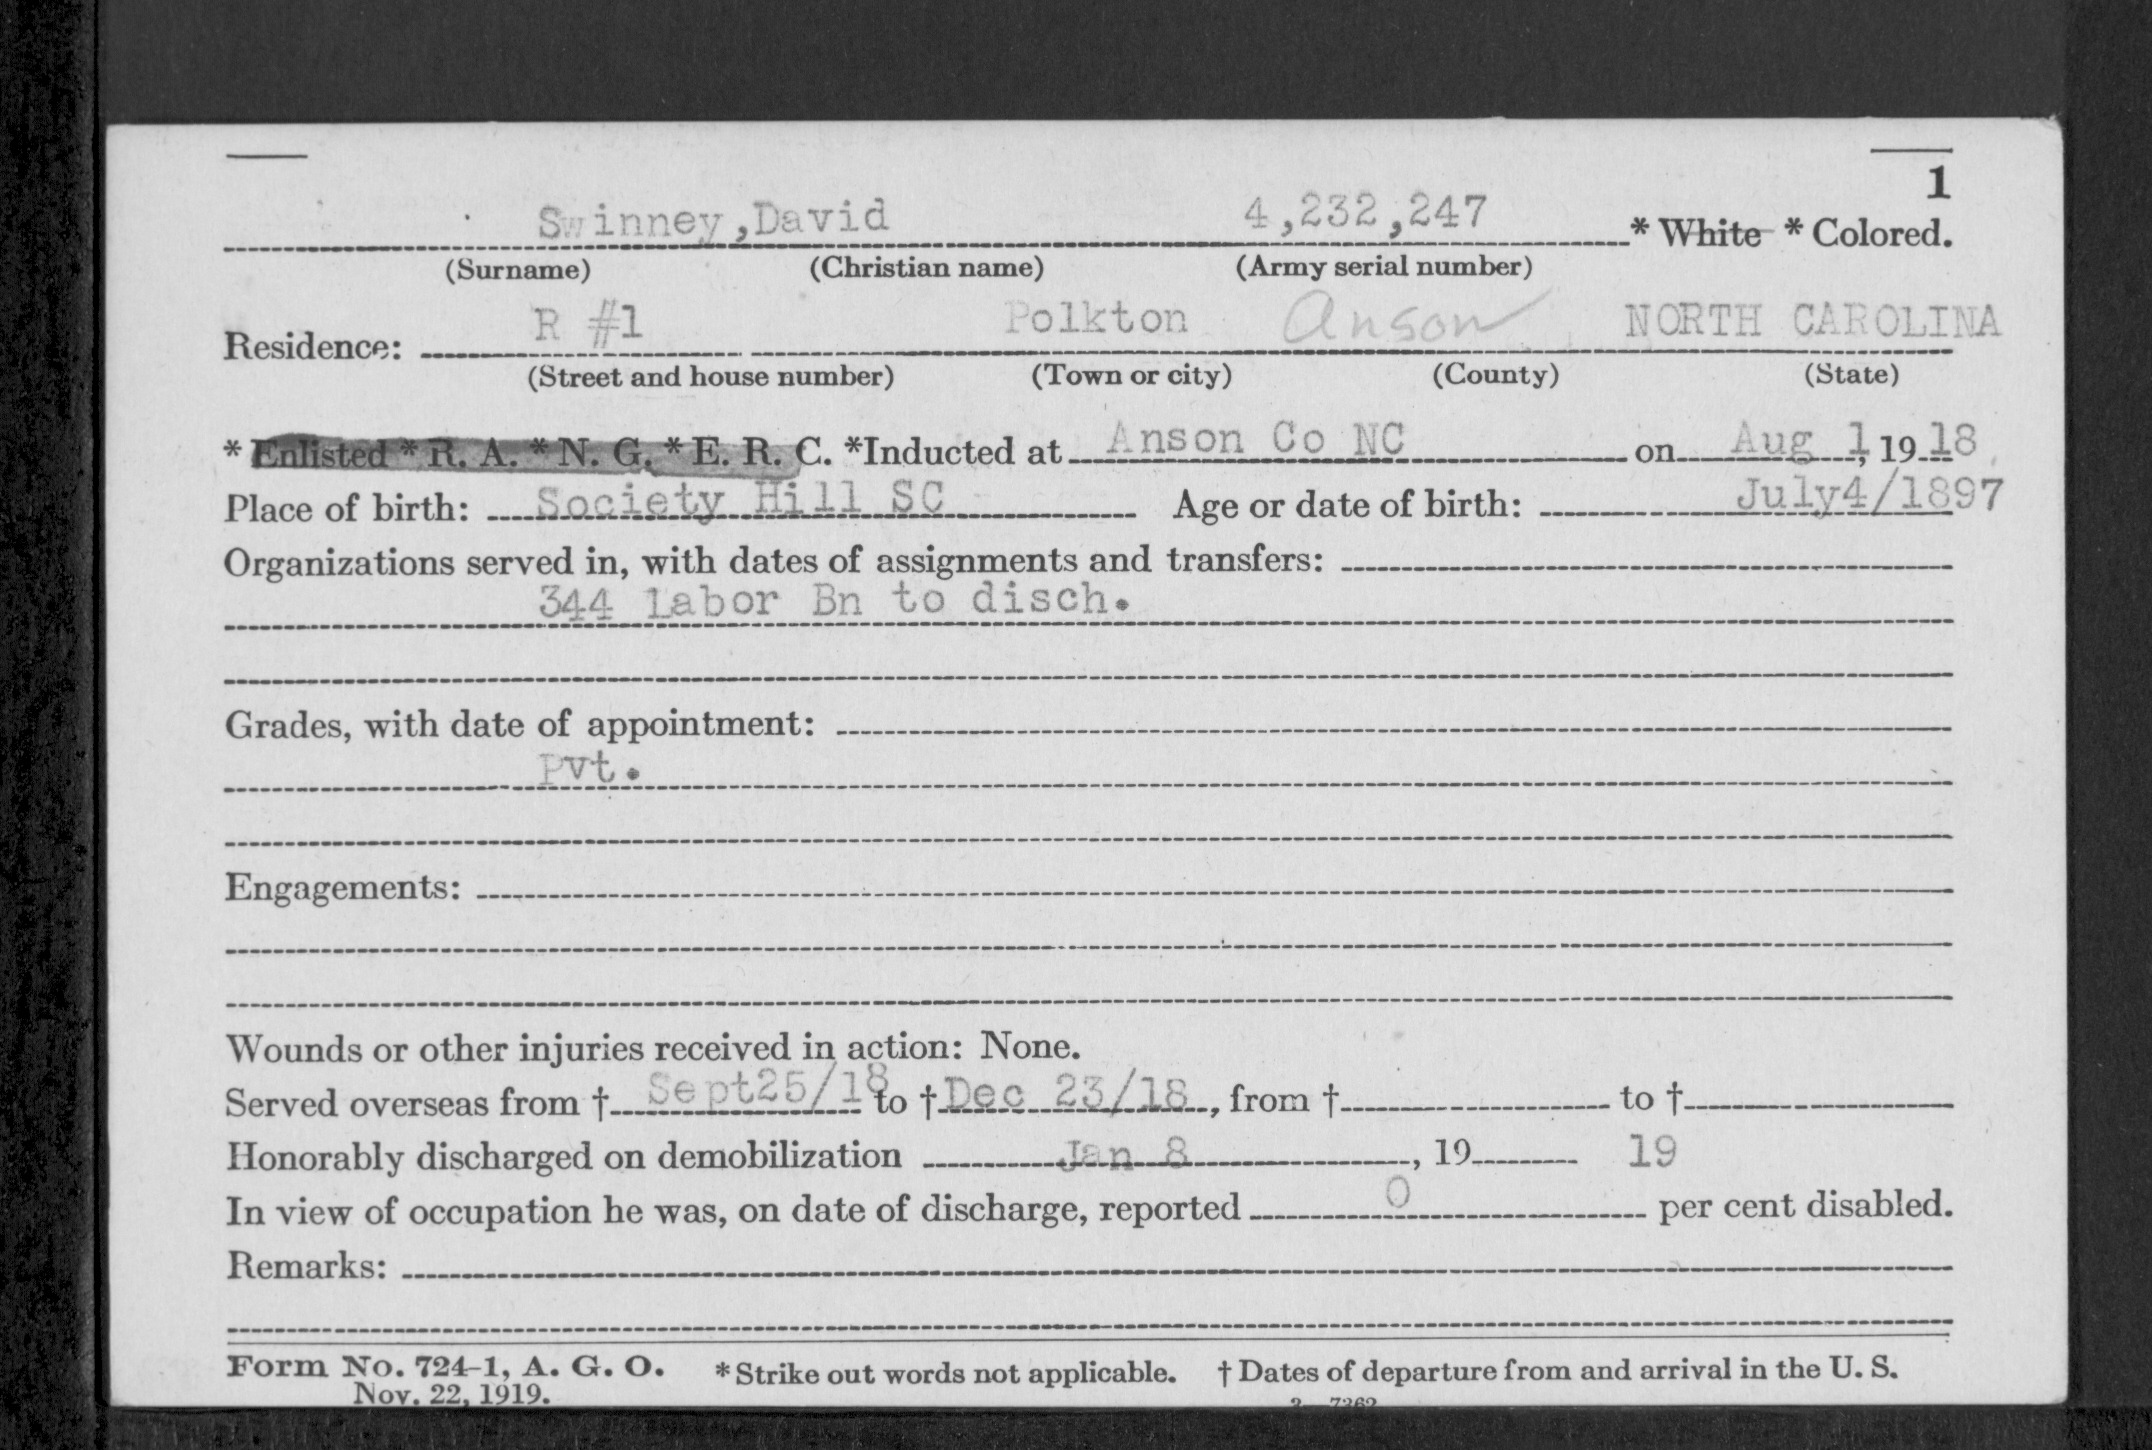 1
Swinney,David 4,232,247 * White * Colored.
(Surname) (Christian name) (Army serial number)
Residence: R #1 Polkton Anson NORTH CAROLINA
(Street and house number) (Town or city) (County) (State)
* Enlisted * R. A. * N. G. * E. R. C. *Inducted at Anson Co NC on Aug 1, 19 18
Place of birth: Society Hill SC Age or date of birth: July4/1897
Organizations served in, with dates of assignments and transfers:
344 Labor Bn to disch.
Grades, with date of appointment:
Pvt.
Engagements:
Wounds or other injuries received in action: None.
Served overseas from † Sept25/18 to † Dec 23/18, from † to †
Honorably discharged on demobilization Jan 8, 19 19
In view of occupation he was, on date of discharge, reported 0 per cent disabled.
Remarks:
Form No. 724-1, A. G. O. * Strike out words not applicable. † Dates of departure from and arrival in the U. S.
Nov. 22, 1919. 3—7362